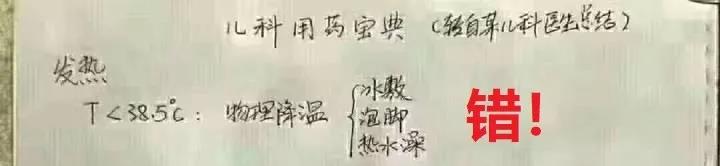 儿科用药宝典（转自某儿科医生总结）
发热
T<38.5℃：物理降温 { 冰敷
泡脚
热水澡
错！